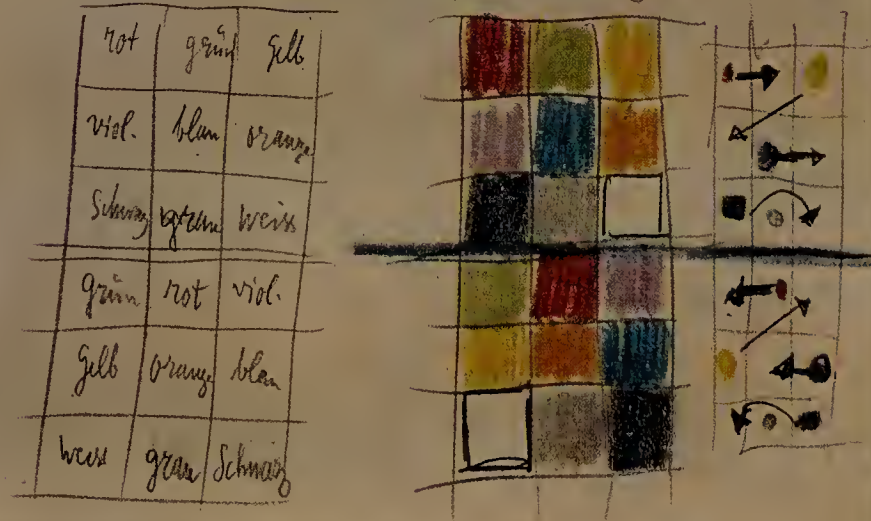 rot grün Gelb
viol. blau orange
Schwarz grau Weiss
grün rot viol.
Gelb orange blau
Weiss grau Schwarz